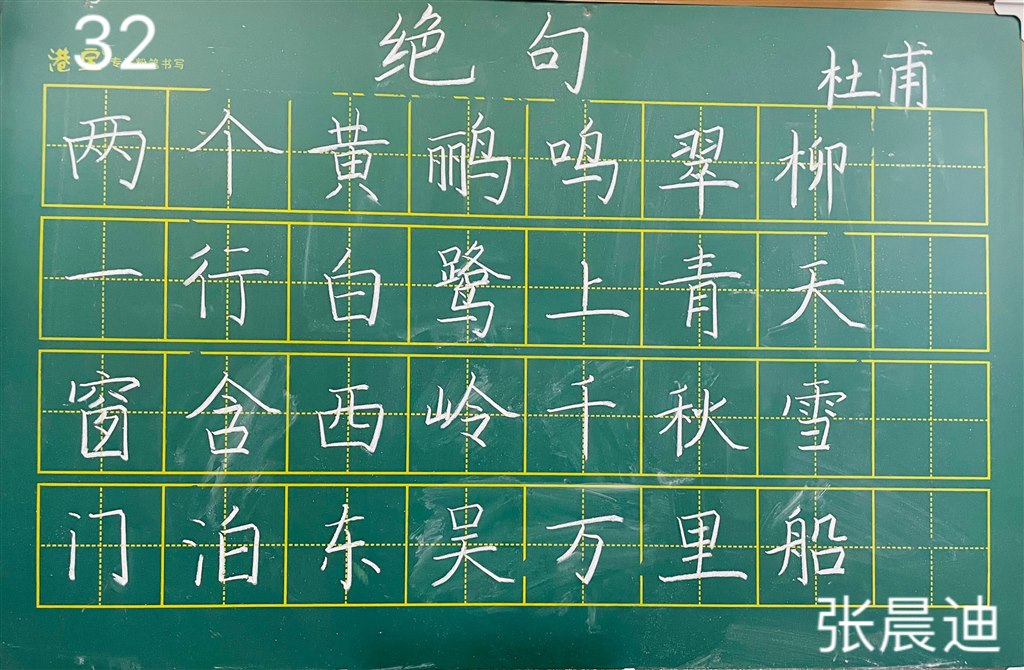 32
绝句
杜甫
两个黄鹂鸣翠柳
一行白鹭上青天
窗含西岭千秋雪
门泊东吴万里船
张晨迪